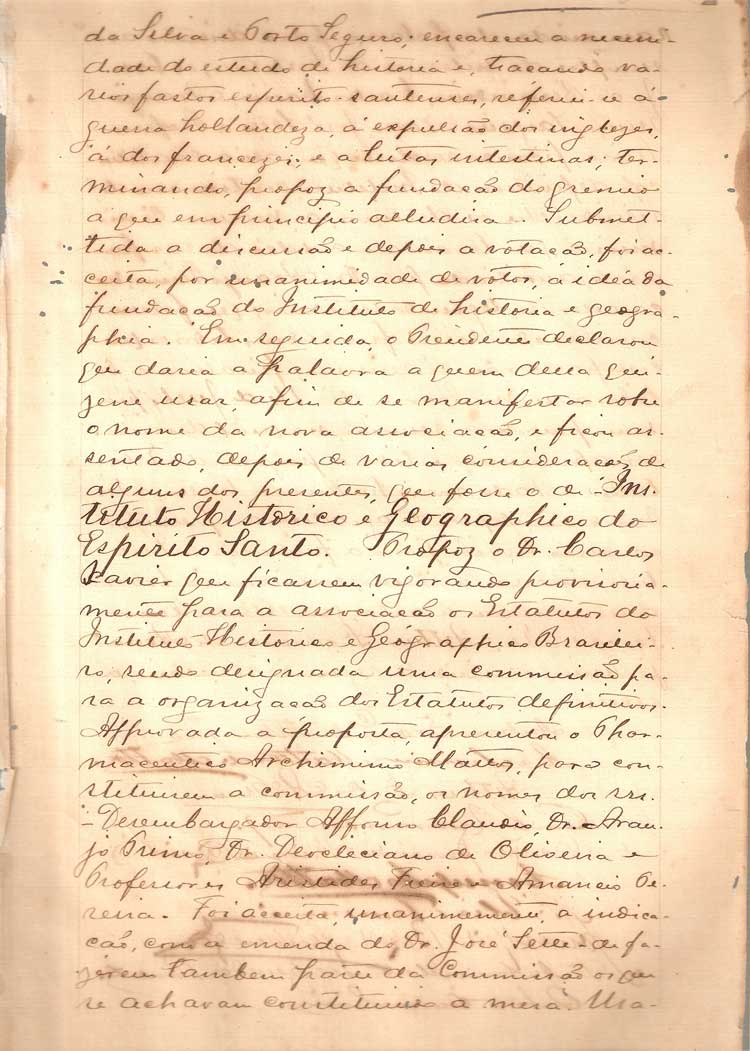 da Silva e Porto Seguro; encarecem a necessi-
dade do estudo da historia e, traçando va-
rios fastos espirito-santenses, referiu-se á
guerra hollandeza, á expulsão dos inglezes,
á dos francezes; e a lutas intestinas; ter-
minando, propoz a fundação do gremio
a que em principio alludira. Submet-
tida a discussão e depois a votação, foi ac-
ceita, por unanimidade de votos, a idéa da
fundação do Instituto de historia e geogra-
phia. Em seguida, o Presidente declarou
que daria a palavra a quem della qui-
zesse usar, afim de se manifestar sobre
o nome da nova associação, e ficou as-
sentado, depois de varias considerações de
alguns dos presentes, que fosse o de - Ins-
tituto Historico e Geographico do
Espirito Santo. Propoz o Dr. Carlos
Xavier que ficassem vigorando provisoria-
mente para a associação os Estatutos do
Instituto Historico e Geographico Brasilei-
ro, sendo designada uma commissão pa-
ra a organização dos Estatutos definitivos.
Approvada a proposta, apresentou o Phar-
maceutico Archimimo Mattos, para con-
stituirem a commissão, os nomes dos srs.
- Desembargador Affonso Claudio, Dr. Arau-
jo Primo, Dr. Deocleciano de Oliveira e
Professores Aristides Freire e Amancio Pe-
reira. Foi acceita, unanimemente, a indica-
ção, com a emenda do Dr. José Sette - de fa-
zerem tambem parte da Commissão os que
se achavam constituindo a mesa. Usa-